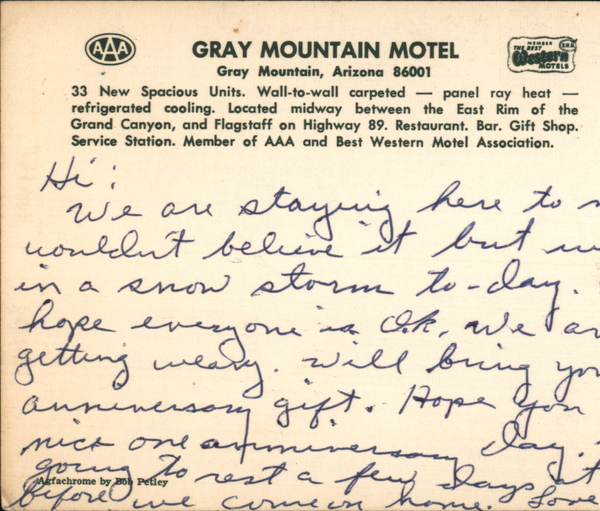 AAA
GRAY MOUNTAIN MOTEL
Gray Mountain, Arizona 86001
MEMBER
THE BEST
Western
MOTELS
33 New Spacious Units. Wall-to-wall carpeted — panel ray heat —
refrigerated cooling. Located midway between the East Rim of the
Grand Canyon, and Flagstaff on Highway 89. Restaurant. Bar. Gift Shop.
Service Station. Member of AAA and Best Western Motel Association.
Hi:
We are staying here to
wouldn't believe it but
in a snow storm to-day.
hope everyone is O.k. We
getting weary. Will bring
anniversary gift. Hope you
nice one anniversary day.
going to rest a few days at
before we come on home. Love
Agfachrome by Bob Petley